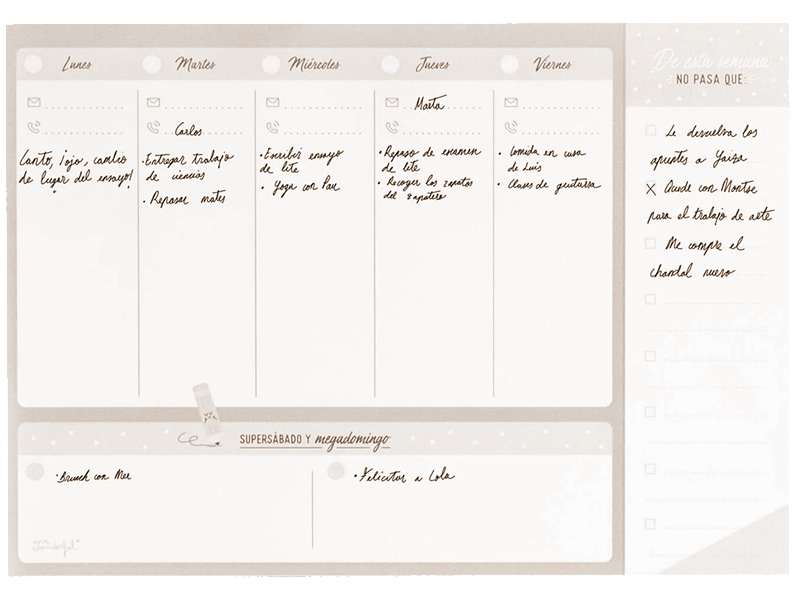 Lunes
Martes
Miércoles
Jueves
Viernes
De esta semana
NO PASA QUE:
Marta
Carlos
Canto, ¡ojo, cambio
de lugar del ensayo!
· Entregar trabajo
de ciencias
· Repasar mates
· Escribir ensayo
de lite
· Yoga con Pau
· Repaso de examen
de lite
· Recoger los zapatos
del zapatero
· Comida en casa
de Luis
· Clases de guitarra
Le devuelva los
apuntes a Yaiza
X Quede con Montse
para el trabajo de arte
Me compre el
chandal nuevo
SUPERSÁBADO Y megadomingo
· Brunch con Mer
· Felicitar a Lola
mr. wonderful